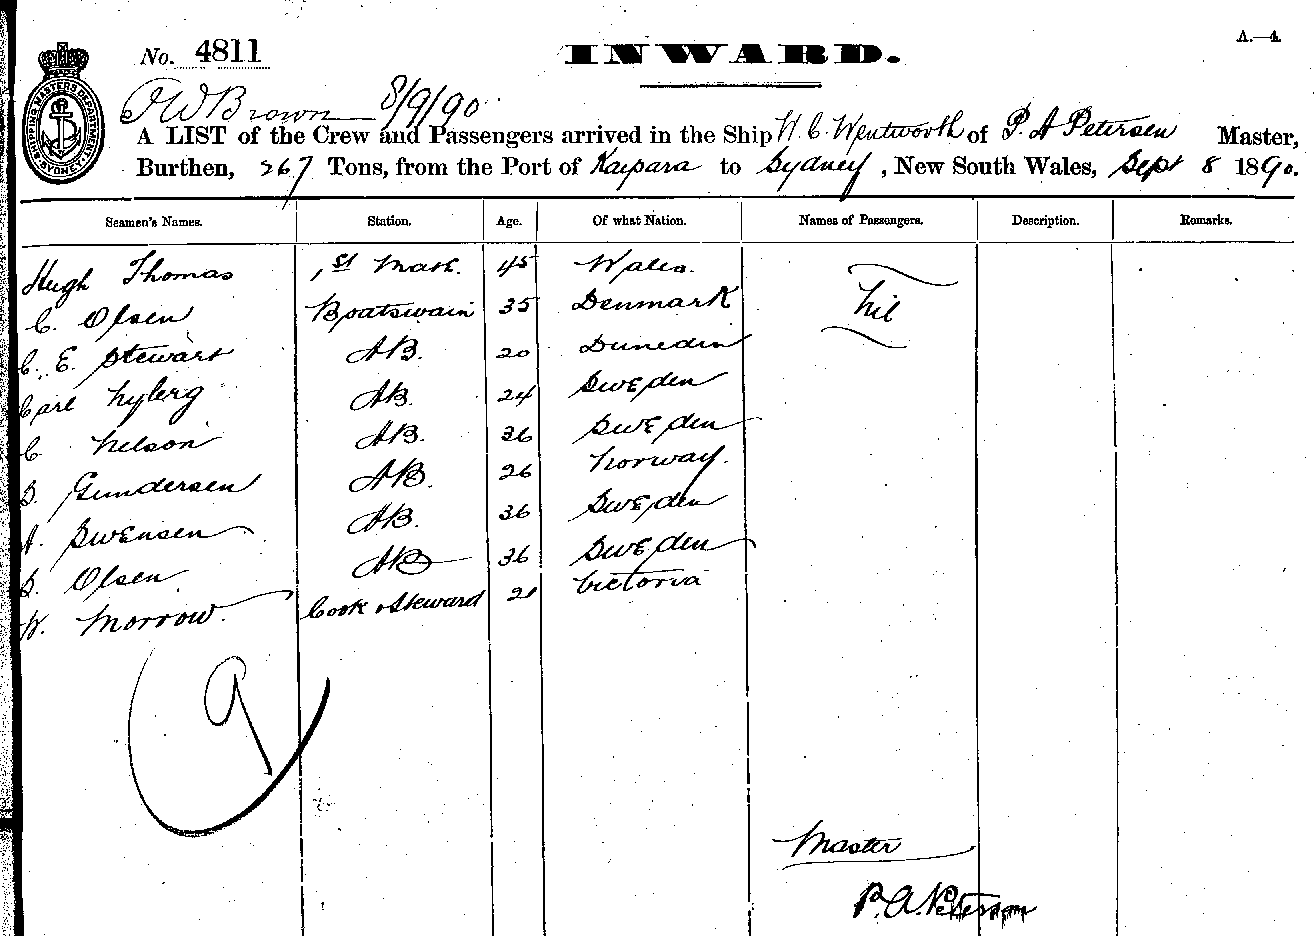 No. 4811
INWARD.
A.—4.
SHIPPING MASTERS DEPARTMENT SYDNEY
J W Brown 8/9/90
A LIST of the Crew and Passengers arrived in the Ship W. C. Wentworth of P. A Petersen Master,
Burthen, 267 Tons, from the Port of Kaipara to Sydney, New South Wales, Sept 8 1890.
Seamen's Names. Station. Age. Of what Nation. Names of Passengers. Description. Remarks.
Hugh Thomas 1st Mate. 45 Wales. Nil
C. Olsen Boatswain 35 Denmark
C. E. Stewart AB. 20 Dunedin
Carl Nyberg AB. 24 Sweden
C Nelson AB. 36 Sweden
B. Gundersen AB. 26 Norway.
A. Swensen AB. 36 Sweden
B. Olsen AB 36 Sweden
W. Morrow. Cook & Steward 21 Victoria
9
Master
P. A. Peterson